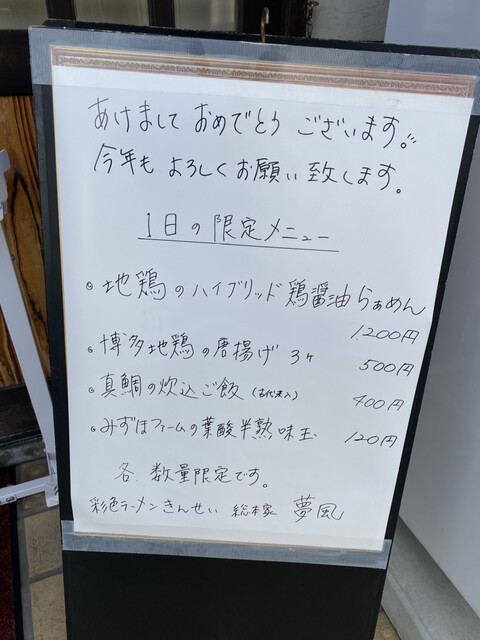 あけまして おめでとう ございます。
今年も よろしくお願い致します。
1日の限定メニュー
地鶏のハイブリッド鶏醤油らぁめん
1,200円
博多地鶏の唐揚げ 3ヶ 500円
真鯛の炊込ご飯 (古代米入) 400円
みずほファームの葉酸半熟味玉 120円
各、数量限定です。
彩色ラーメンきんせい 総本家 夢風